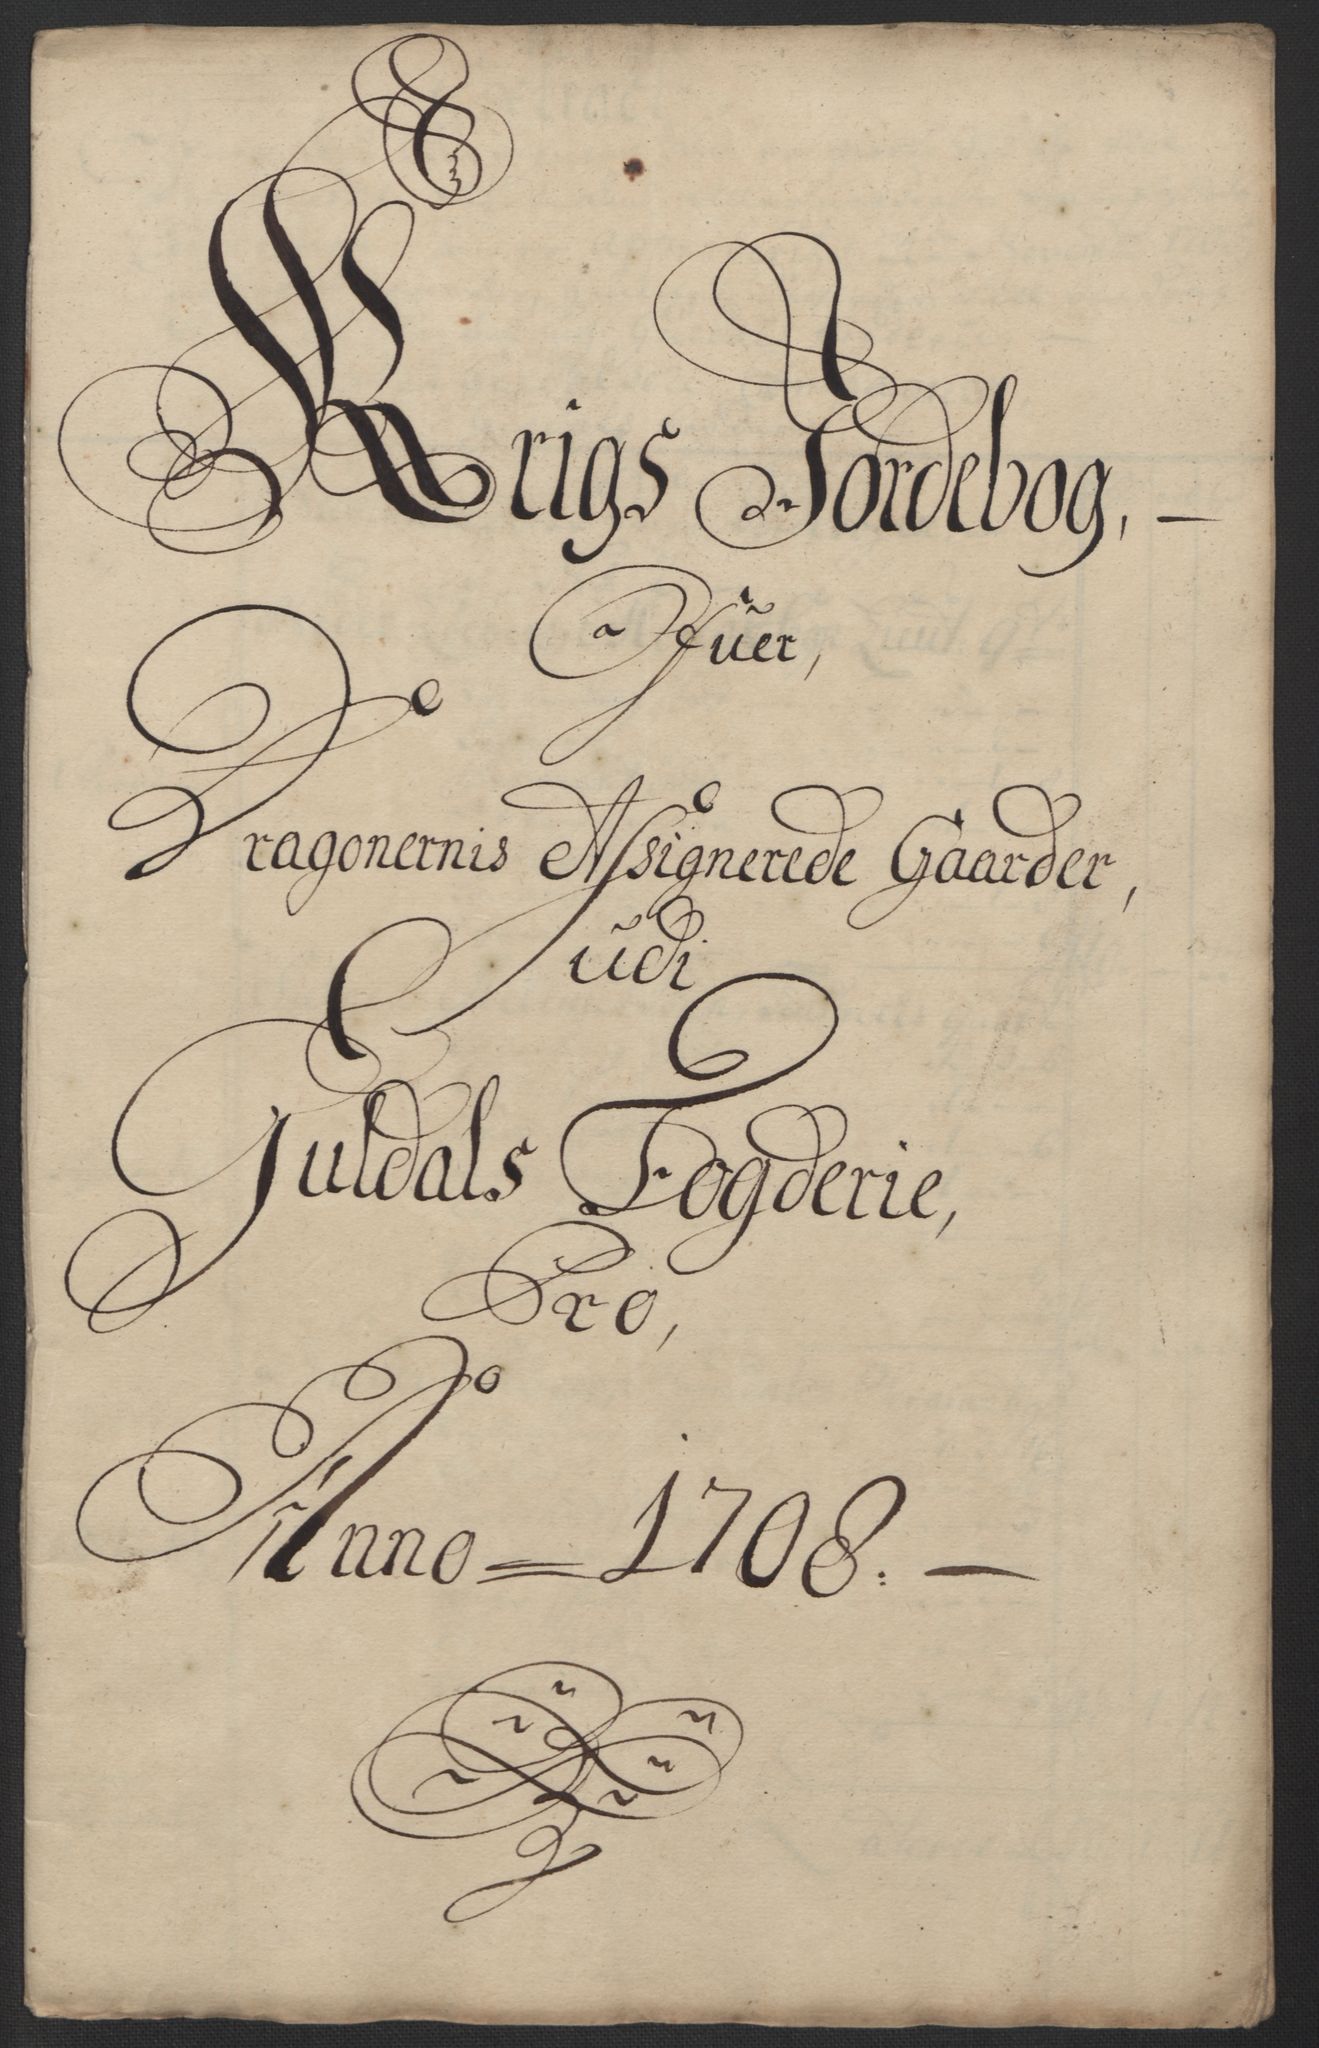 Krigs Jordebog, —
Ofuer,
Dragonernis Assignerede Gaarder,
udi
Guldals Fogderie,
Pro,
Anno = 1708. —